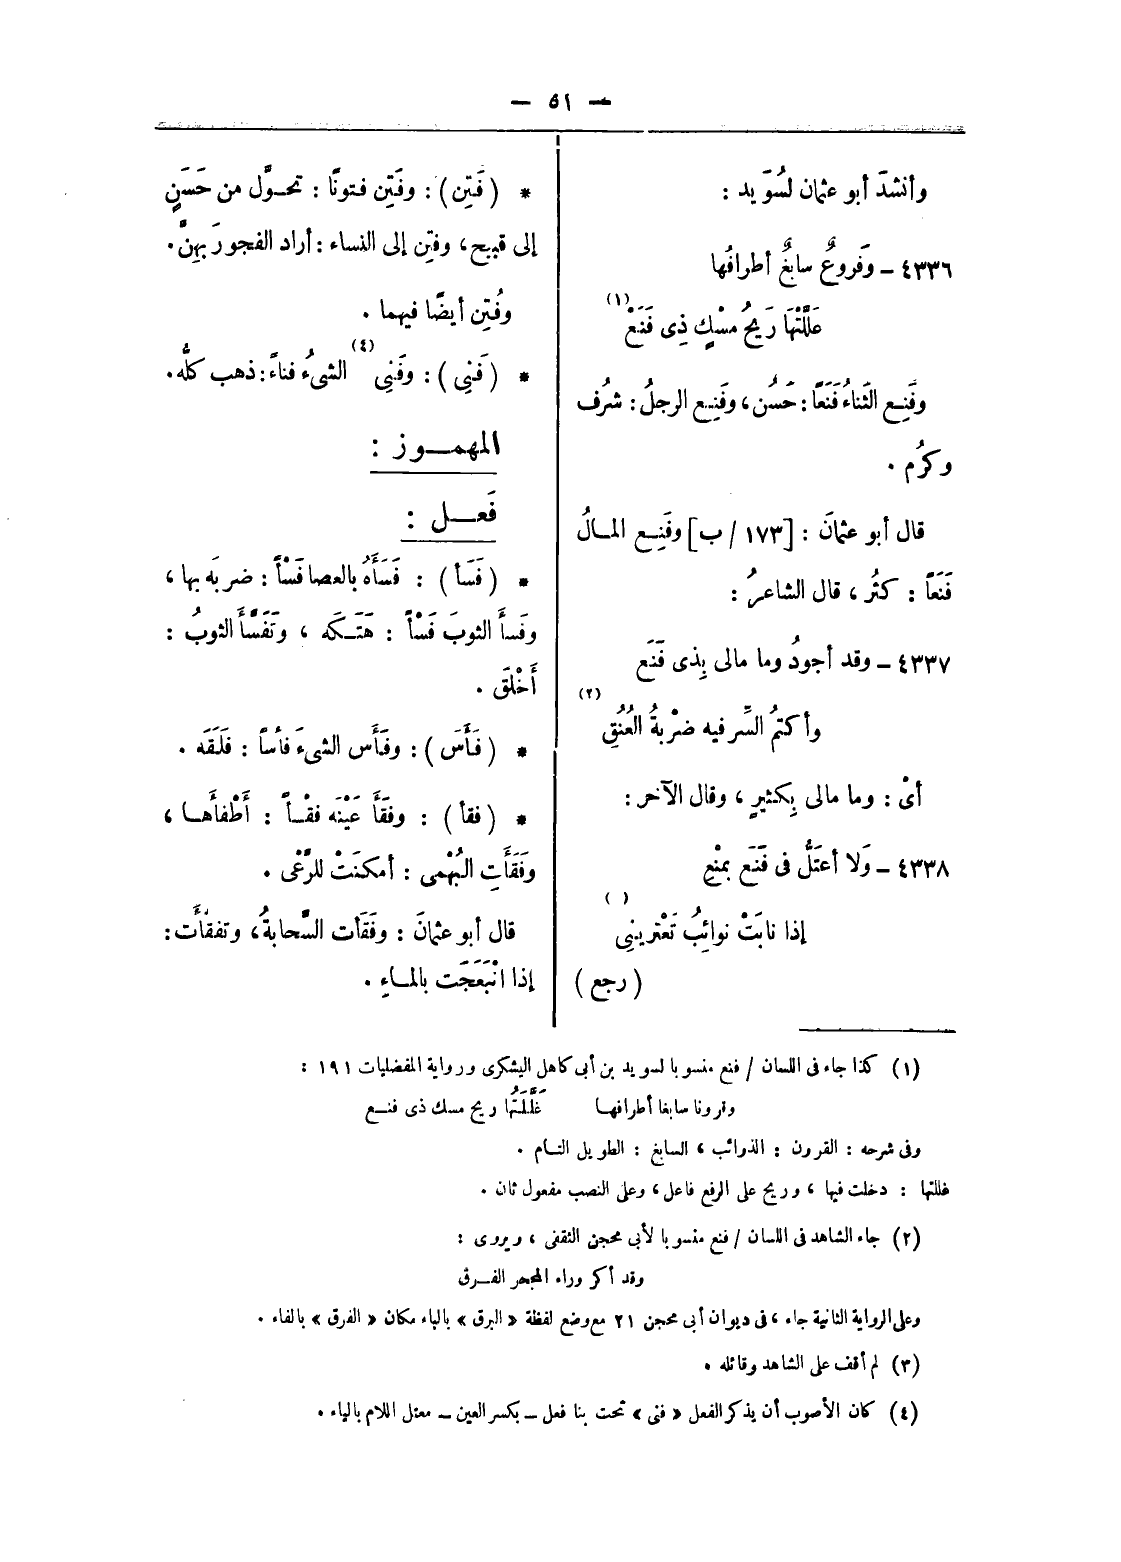 — ٥١ —
وأنشدَ أبو عثمان لسُوَيد :
٤٣٣٦ – وَفروعٌ سابغٌ أطرافُها
عَلَّلَتْهَا رَيحُ مسْكٍ ذِى فَنَعْ (١)
وفَنِـع الثَناءُ فَنَعًا : حَسُن ، وفَنِـع الرجلُ : شرُف
وكرُم .
قال أبو عثمانَ : [١٧٣ / ب] وفَنِـع المـالُ
فَنَعًا : كثُر ، قال الشاعرُ :
٤٣٣٧ – وقد أجودُ وما مالى بِذى فَنَع
وأكتمُ السِّر فيه ضرْبةُ العُنُقِ (٢)
أىْ : وما مالى بِكثيرٍ ، وقال الآخر :
٤٣٣٨ – وَلا أعتَلُّ فى فَنَع بمنْعٍ
إذا نابَتْ نوائبُ تَعْترينِى ( )
( رجع )
* ( فَتِن ) : وفَتِن فـتونًا : تحـوَّل من حَسَنٍ
إلى قبيح ، وفتِن إلى النساء : أراد الفجورَ بهِنَّ .
وفُتِن أيضًا فيهما .
* ( فَنِى ) : وفَنِى (٤) الشىءُ فناءً : ذهب كلُّه .
المهمـوز :
فَعـل :
* ( فَسَأ ) : فَسَأَهُ بالعصا فَسْأً : ضربَه بها ،
وفَسأَ الثوبَ فَسْأً : هَتَـكَه ، وتَفَسَّأَ الثوبُ :
أَخْلَقَ .
* ( فَأَسَ ) : وفَأَس الشىءَ فأسًا : فَلَقَه .
* ( فقأ ) : وفقَأَ عَيْنَه فقْـأً : أَطْفأَهـا ،
وفَقَأَتِ البُهْمى : أمكنَتْ للرَّعْى .
قال أبو عثمانَ : وفَقَأَت السَّحابةُ ، وتفقأَت :
إذا انْبَعَجَت بالمـاءِ .
(١) كذا جاء فى اللسان / فنع منسوبا لسويد بن أبى كاهل اليشكرى ورواية المفضليات ١٩١ :
وقرونا سابغا أطرافهـا غَلَّلَتْهَا ريح مسك ذى فنـع
وفى شرحه : القرون : الذوائب ، السابغ : الطويل التـام .
غللتها : دخلت فيها ، وريح على الرفع فاعل ، وعلى النصب مفعول ثان .
(٢) جاء الشاهد فى اللسان / فنع منسوبا لأبى محجن الثقفى ، ويروى :
وقد أكر وراء المجحر الفـرق
وعلى الرواية الثانية جاء ، فى ديوان أبى محجن ٢١ مع وضع لفظة « البرق » بالباء مكان « الفرق » بالفاء .
(٣) لم أقف على الشاهد وقائله .
(٤) كان الأصوب أن يذكر الفعل « فنى » تحت بنا فعل – بكسر العين – معتل اللام بالياء .